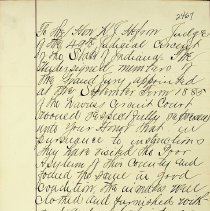 2407
To the Hon Judge
of the 49th Judicial Circuit
of the State of Indiana. The
undersigned members of
the Grand Jury appointed
at the September Term 1885
of the Daviess Circuit Court
would respectfully represent
unto your Honor that in
pursuance to instructions
they have visited the Poor
Asylum of this County and
found the same in good
Condition, the inmates well
clothed and furnished with